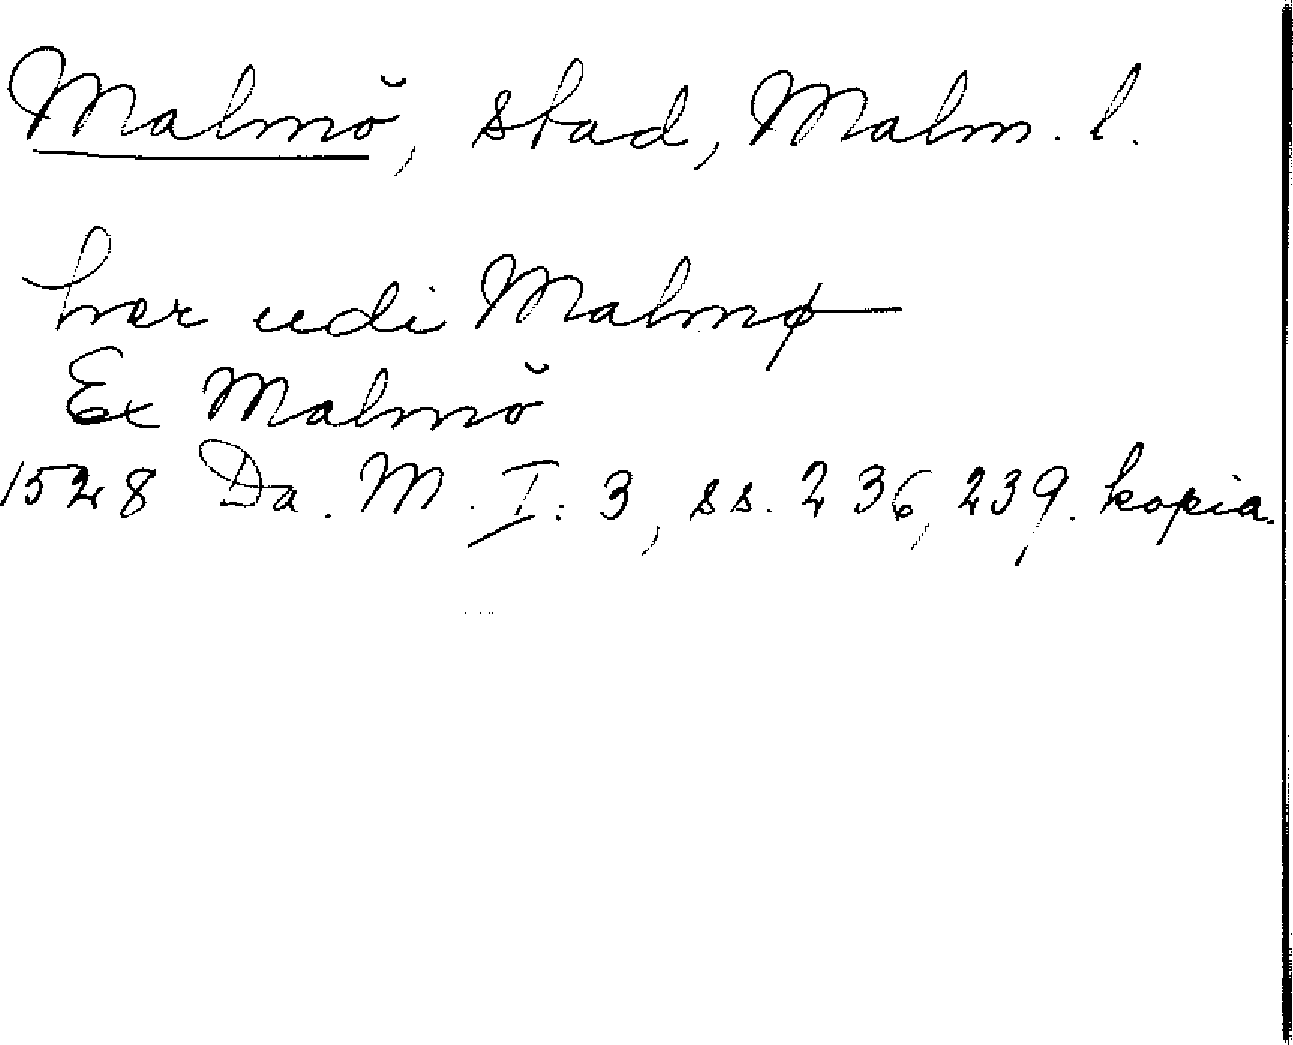 Malmö, stad, Malm. l.
hær udi Malmø
Ex Malmö
1528 Da. M. I: 3, ss. 236, 239. kopia.